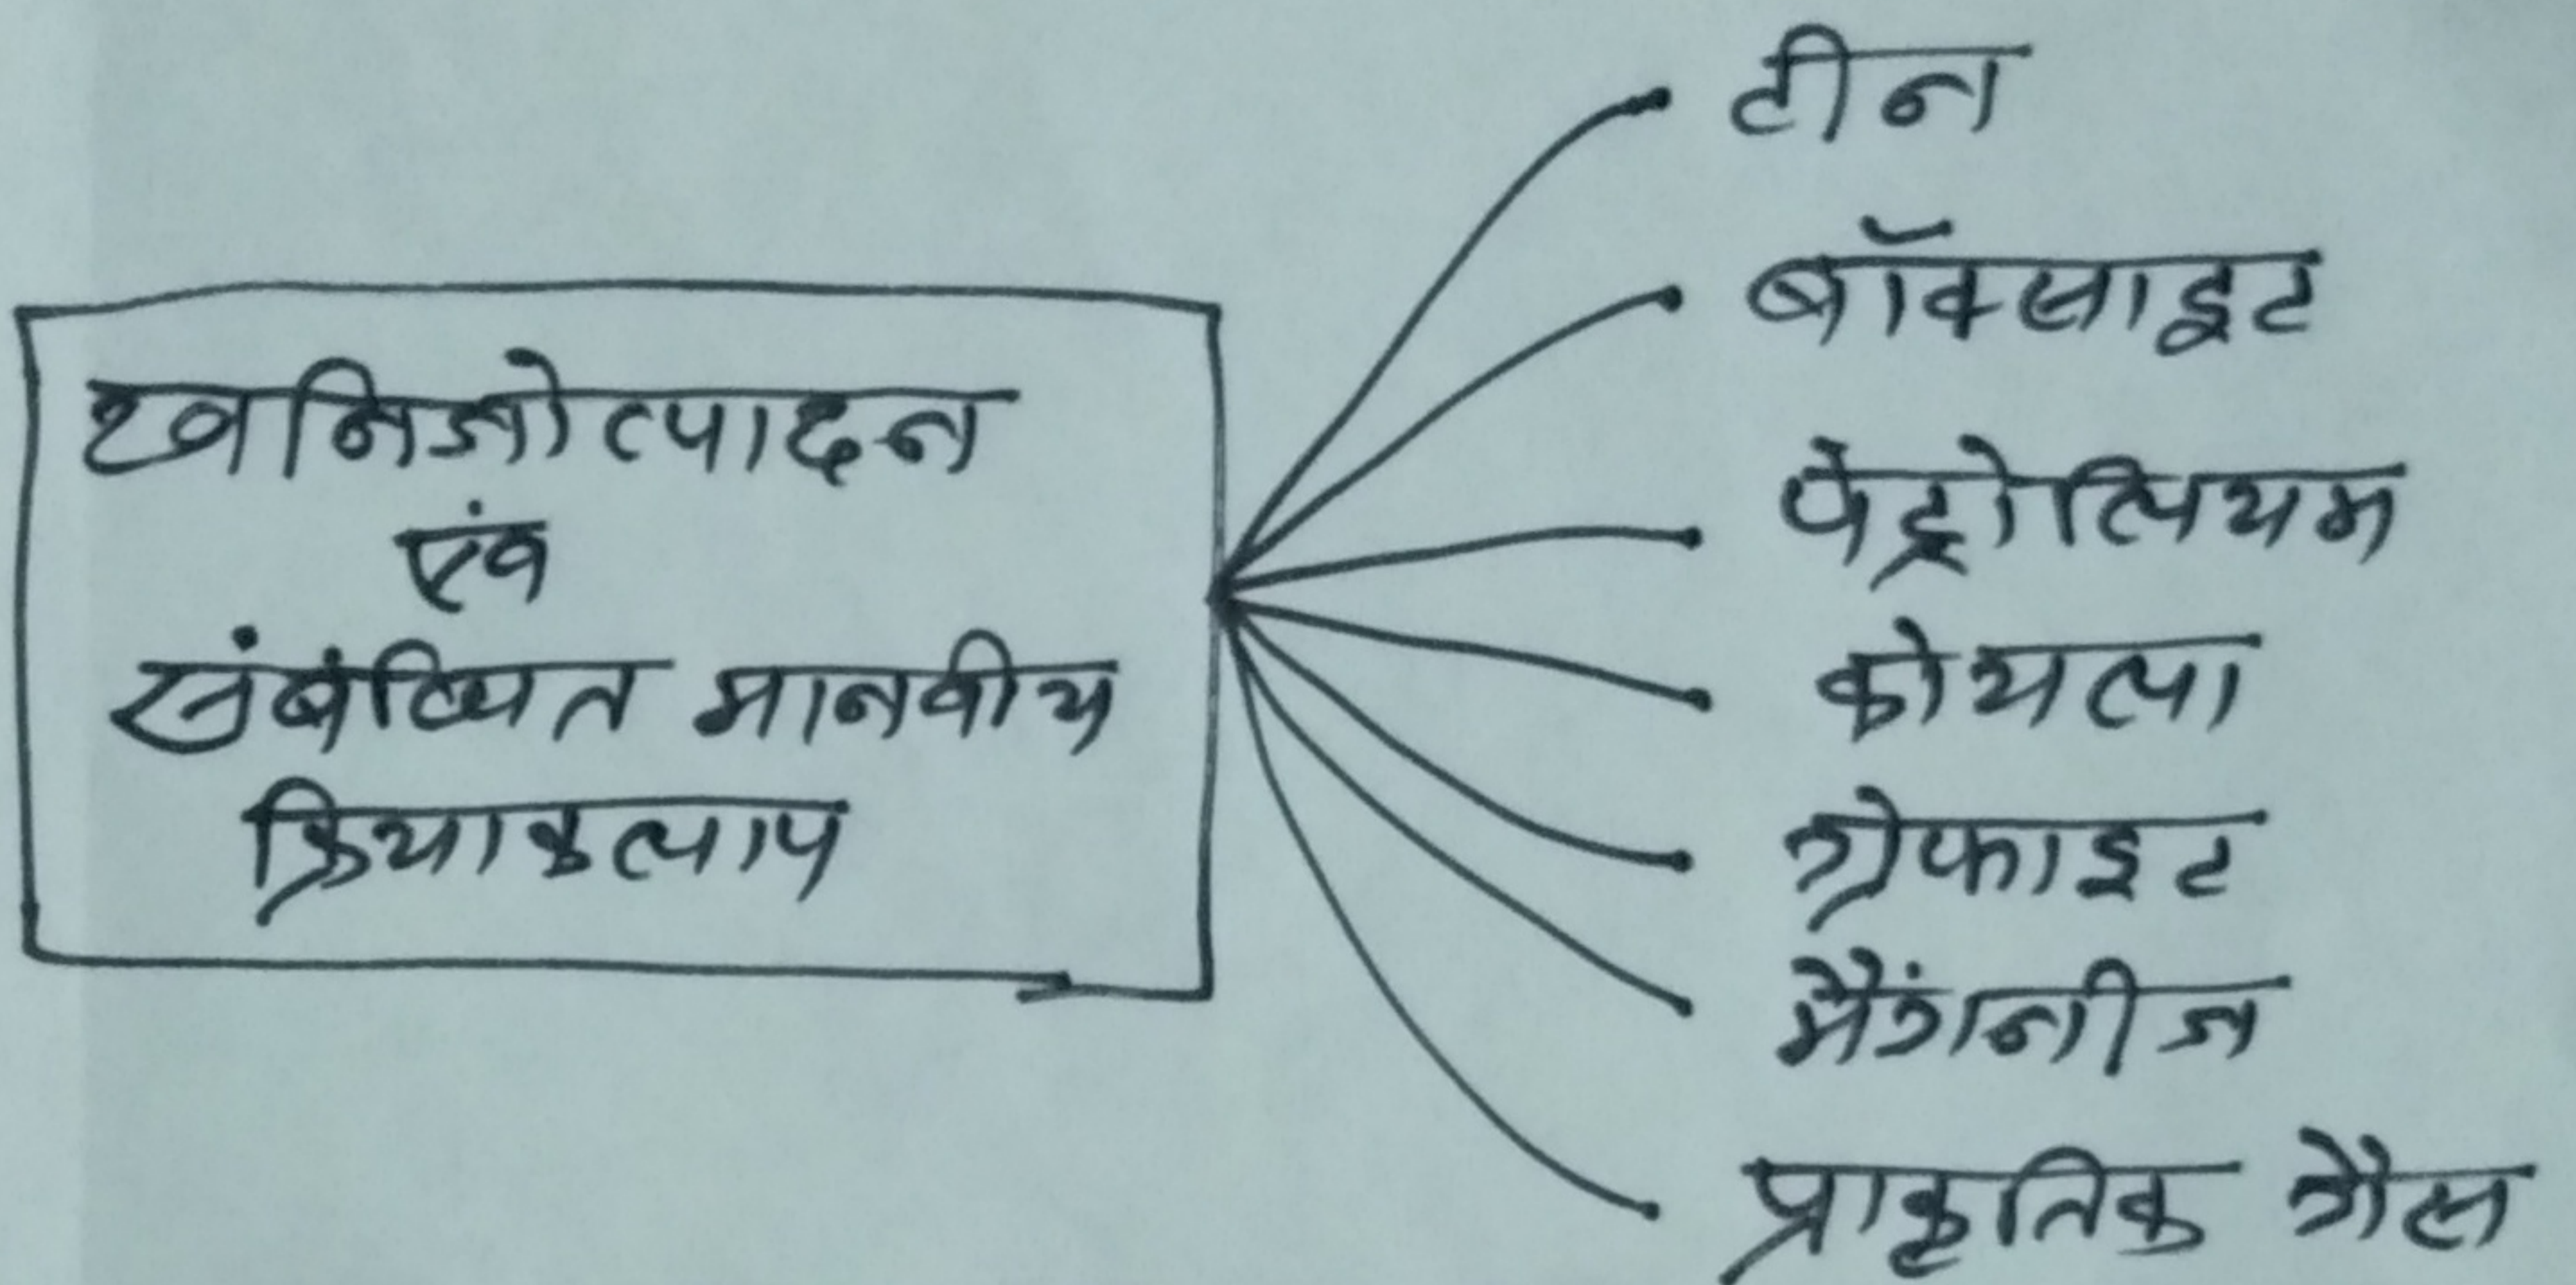 खनिजोत्पादन
एंव
संबंधित मानवीय
क्रियाकलाप
टीन
बॉक्साइट
पेट्रोलियम
कोयला
ग्रेफाइट
मैंगनीज
प्राकृतिक गैस